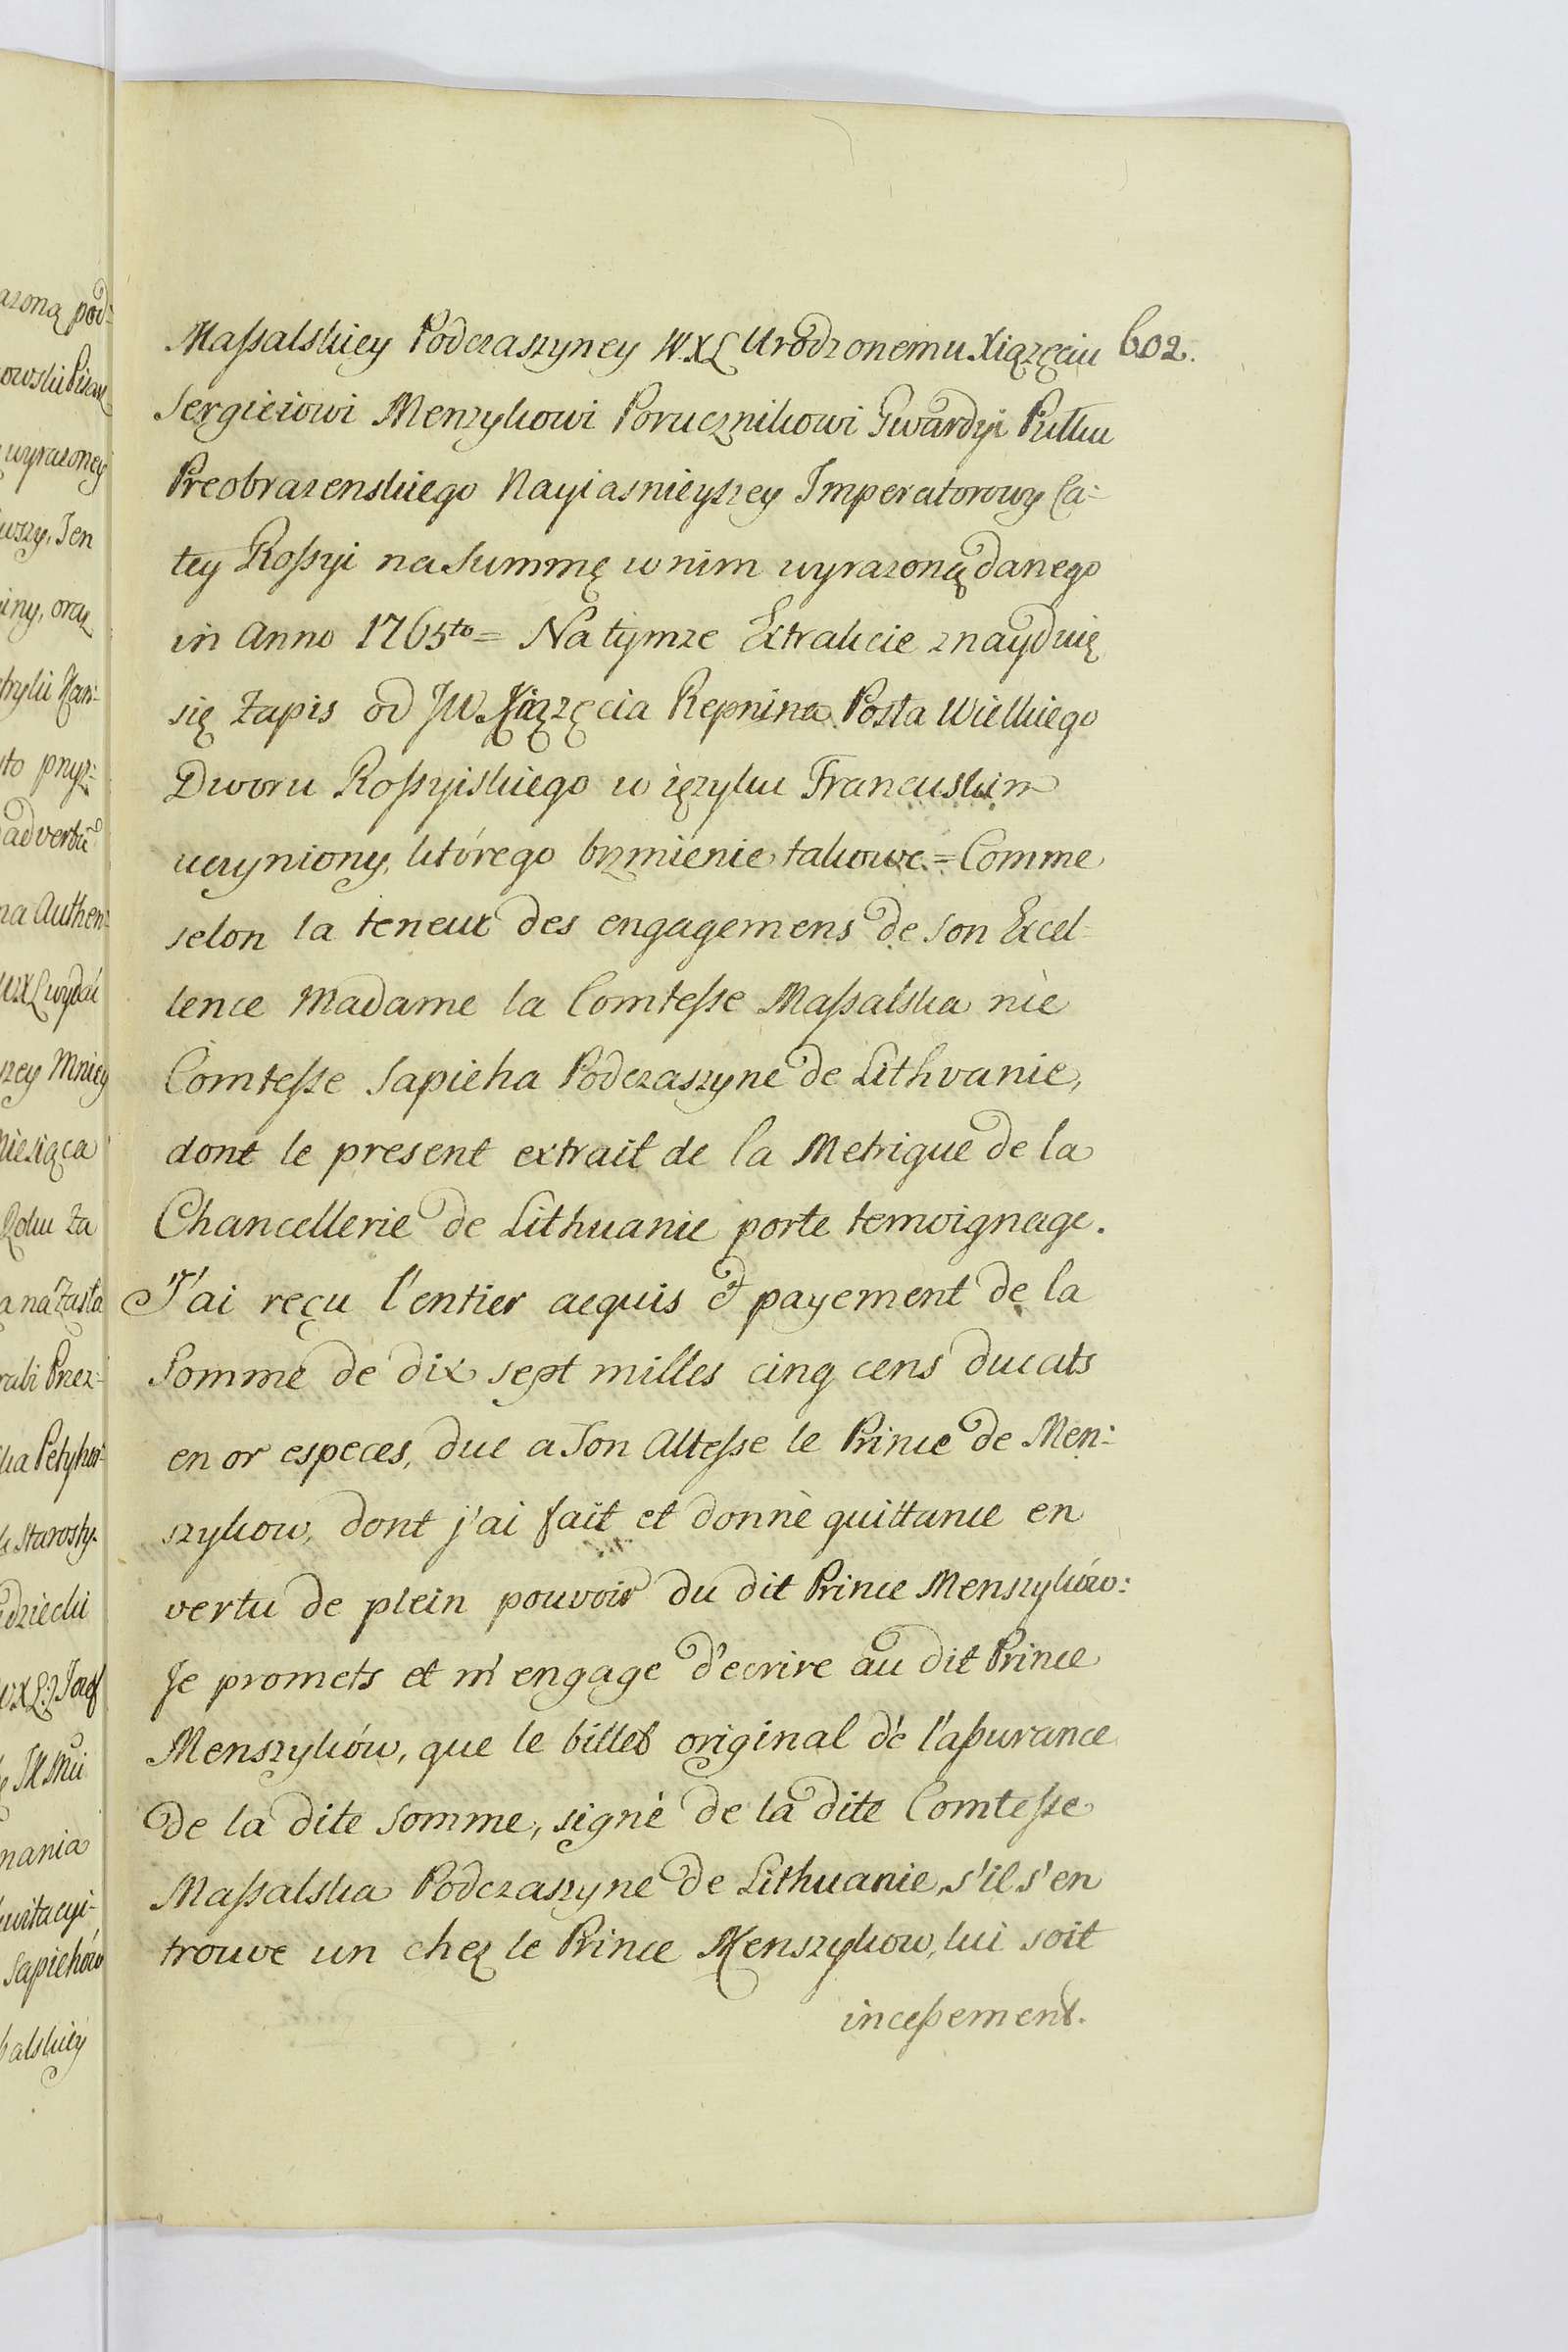 Maßalskiey Podczaszyney W.X.L Urodzonemu Xiązęciu 602.
Sergieiowi Menzykowi Porucznikowi Gwardyi Pułku
Preobrazenskiego Nayiasnieyszey Imperatorowy Ca:
łey Roßyi na Summę w nim wyrazoną danego
in Anno 1765to = Na tymze Extrakcie znayduię
się Zapis od JW. Xiązęcia Repnina Posła Wielkiego
Dworu Roßyiskiego w ięzyku Francuskim
uczyniony, którego brzmienie takowe = Comme
selon la teneur des engagemens de Son Excel=
lence Madame la Comteße Maßalska nèe
Comteße Sapieha Podczaszyne de Lithvanie,
dont le present extrait de la Metrique de la
Chancellerie de Lithuanie porte temoignage.
J'ai reçu l'entier acquis et payement de la
Somme de dix sept milles cinq cens ducats
en or especes, due a Son Alteße le Prince de Men:
szykow, dont j'ai fait et donnè quittance en
vertu de plein pouvoir du dit Prince Menszyków:
Je promets et m'engage d'ecrire au dit Prince
Menszyków, que le billet original de l'aßurance
de la dite Somme, signè de la dite Comteße
Maßalska Podczaszyne de Lithuanie, s'il s'en
trouve un chez le Prince Menszykow, lui soit
inceßement.